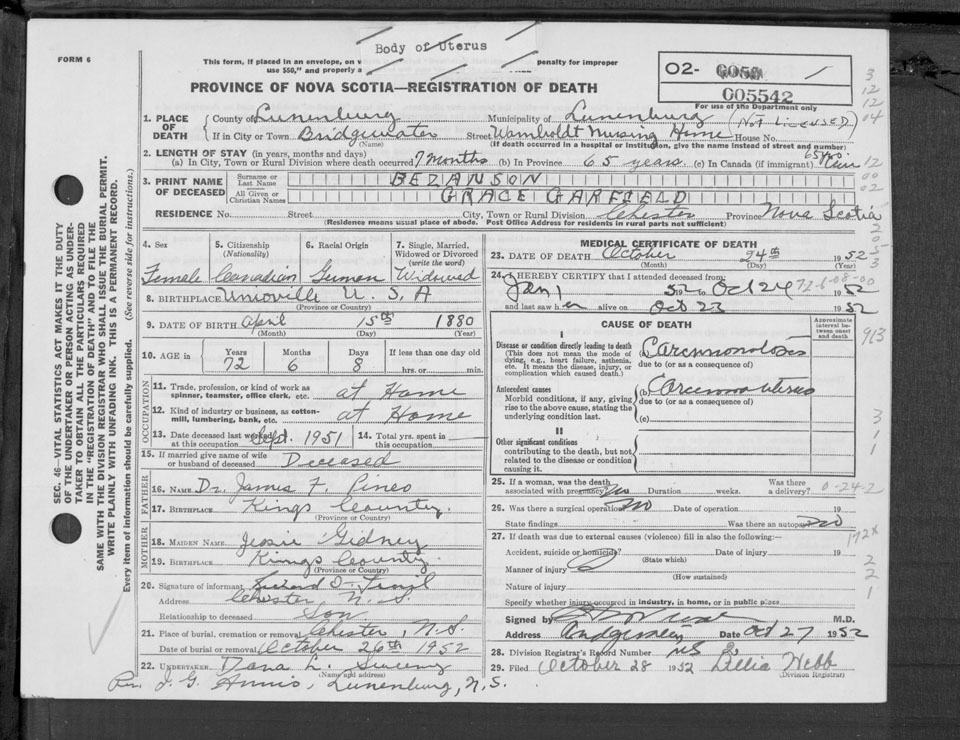 Body of Uterus
FORM 6
This form, if placed in an envelope, on w penalty for improper
use $50," and properly a
PROVINCE OF NOVA SCOTIA—REGISTRATION OF DEATH
02-
005542
For use of the Department only
1. PLACE OF DEATH
County of Lunenburg Municipality of Lunenburg (Not Licensed)
If in City or Town Bridgewater Street Wamboldt Nursing Home House No.
(Name) (If death occurred in a hospital or institution, give the name instead of street and number)
2. LENGTH OF STAY (in years, months and days)
(a) In City, Town or Rural Division where death occurred 7 months (b) In Province 65 years (c) In Canada (if immigrant) 65
3. PRINT NAME OF DECEASED
Surname or Last Name BEZANSON
All Given or Christian Names GRACE GARFIELD
RESIDENCE No. Street City, Town or Rural Division Chester Province Nova Scotia
(Residence means usual place of abode. Post Office Address for residents in rural parts not sufficient)
4. Sex Female
5. Citizenship (Nationality) Canadian
6. Racial Origin German
7. Single, Married, Widowed or Divorced (write the word) Widowed
8. BIRTHPLACE Unioville U.S.A
(Province or Country)
9. DATE OF BIRTH April 15th 1880
(Month) (Day) (Year)
10. AGE in Years 72 Months 6 Days 8 If less than one day old hrs. or min.
OCCUPATION
11. Trade, profession, or kind of work as spinner, teamster, office clerk, etc. at Home
12. Kind of industry or business, as cotton-mill, lumbering, bank, etc. at Home
13. Date deceased last worked at this occupation Sept. 1951 14. Total yrs. spent in this occupation
15. If married give name of wife or husband of deceased Deceased
FATHER
16. NAME Dr. James F. Pineo
17. BIRTHPLACE Kings County.
(Province or Country)
MOTHER
18. MAIDEN NAME Jessie Gidney
19. BIRTHPLACE Kings County
(Province or Country)
20. Signature of informant
Address Chester N.S.
Relationship to deceased Son
21. Place of burial, cremation or removal Chester, N.S.
Date of burial or removal October 26th 1952
22. UNDERTAKER Dana L. Sweeny
(Name and address)
Per. J. G. Annis, Lunenburg, N.S.
MEDICAL CERTIFICATE OF DEATH
23. DATE OF DEATH October 24th 1952
(Month) (Day)
24. I HEREBY CERTIFY that I attended deceased from:
Jan 1 52 to Oct 24 1952
72-6-08-00
and last saw her alive on Oct 23 1952
CAUSE OF DEATH
Approximate interval between onset and death
I
Disease or condition directly leading to death
(This does not mean the mode of dying, e.g., heart failure, asthenia, etc. It means the disease, injury, or complication which caused death.)
(a) Carcinomatosis
due to (or as a consequence of)
Antecedent causes
Morbid conditions, if any, giving rise to the above cause, stating the underlying condition last.
(b) Carcinoma uterus
due to (or as a consequence of)
(c)
II
Other significant conditions contributing to the death, but not related to the disease or condition causing it.
25. If a woman, was the death associated with pregnancy? No Duration weeks. Was there a delivery? 0-24-2
26. Was there a surgical operation No Date of operation 19
State findings Was there an autopsy No
27. If death was due to external causes (violence) fill in also the following:—
Accident, suicide or homicide? Date of injury 19
(State which)
Manner of injury
(How sustained)
Nature of injury
Specify whether injury occurred in industry, in home, or in public place
Signed by M.D.
Address Bridgewater Date Oct 27 1952
28. Division Registrar's Record Number
29. Filed October 28 1952 Lillia Webb
(Division Registrar)
SEC. 46—VITAL STATISTICS ACT MAKES IT THE DUTY
OF THE UNDERTAKER OR PERSON ACTING AS UNDER-
TAKER TO OBTAIN ALL THE PARTICULARS REQUIRED
IN THE "REGISTRATION OF DEATH" AND TO FILE THE
SAME WITH THE DIVISION REGISTRAR WHO SHALL ISSUE THE BURIAL PERMIT.
WRITE PLAINLY WITH UNFADING INK. THIS IS A PERMANENT RECORD.
Every item of information should be carefully supplied. (See reverse side for instructions.)
3
12
12
04
12
00
02
2
0
5
3
913
3
1
1
172x
2
2
1